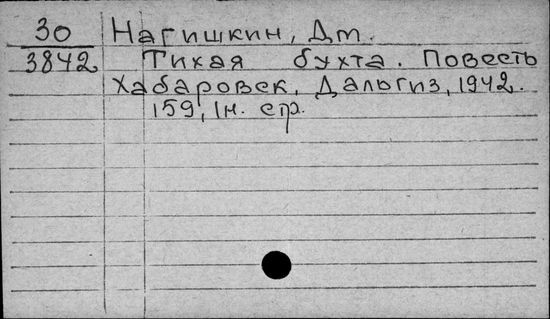 30 Нагишкин, Дт.
3842 Тихая бухта. Повесть
Хабаровск, Дальгиз, 1942.
159, 1н. стр.